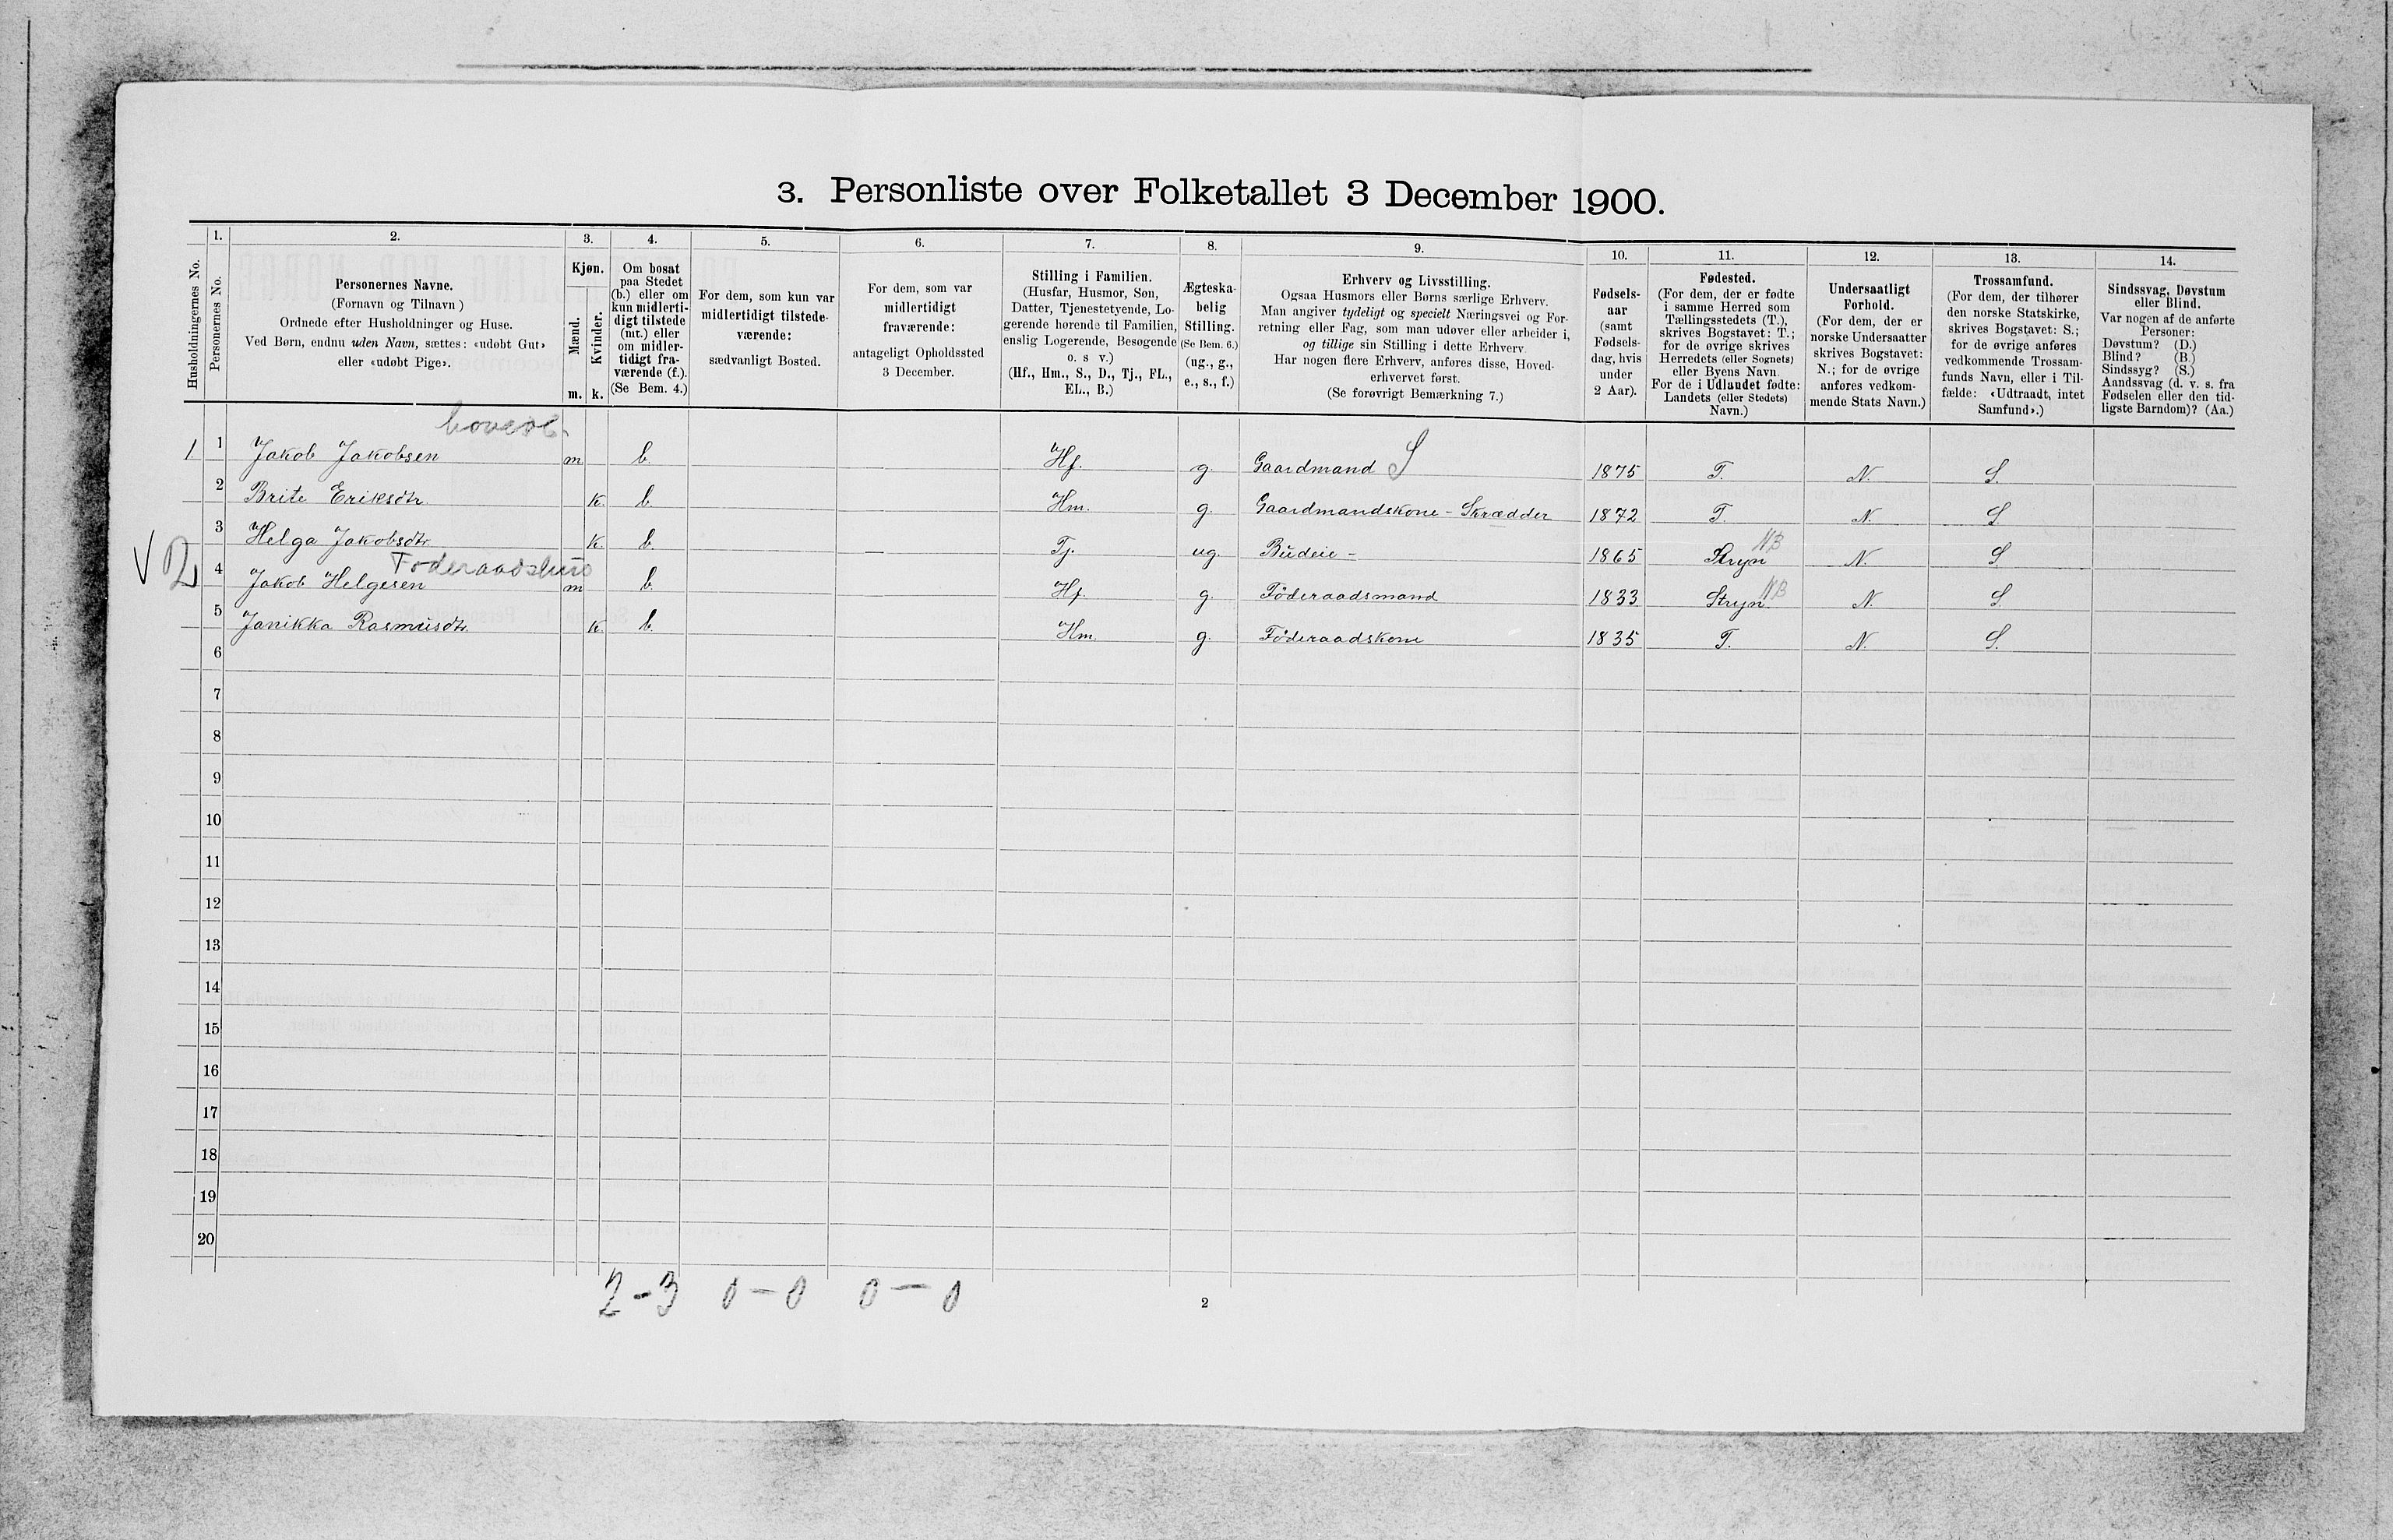 3. Personliste over Folketallet 3 December 1900.
1. 2. 3. 4. 5. 6. 7. 8. 9. 10. 11. 12. 13. 14.
Husholdningernes No.
Personernes No.
Personernes Navne.
(Fornavn og Tilnavn )
Ordnede efter Husholdninger og Huse.
Ved Børn, endnu uden Navn, sættes: «udøbt Gut»
eller «udøbt Pige».
Kjøn.
Mænd.
Kvinder.
m. k.
Om bosat
paa Stedet
(b.) eller om
kun midlerti-
digt tilstede
(mt.) eller
om midler-
tidigt fra-
værende (f.).
(Se Bem. 4.)
For dem, som kun var
midlertidigt tilstede-
værende:
sædvanligt Bosted.
For dem, som var
midlertidigt
fraværende:
antageligt Opholdssted
3 December.
Stilling i Familien.
(Husfar, Husmor, Søn,
Datter, Tjenestetyende, Lo-
gerende hørende til Familien,
enslig Logerende, Besøgende
o. s v.)
(Hf., Hm., S., D., Tj., FL.,
EL., B.)
Ægteska-
belig
Stilling.
(Se Bem. 6.)
(ug., g.,
e., s., f.)
Erhverv og Livsstilling.
Ogsaa Husmors eller Børns særlige Erhverv.
Man angiver tydeligt og specielt Næringsvei og For-
retning eller Fag, som man udøver eller arbeider i,
og tillige sin Stilling i dette Erhverv.
Har nogen flere Erhverv, anføres disse, Hoved-
erhvervet først.
(Se forøvrigt Bemærkning 7.)
Fødsels-
aar
(samt
Fødsels-
dag, hvis
under
2 Aar).
Fødested.
(For dem, der er fødte
i samme Herred som
Tællingsstedets (T.),
skrives Bogstavet: T.;
for de øvrige skrives
Herredets (eller Sognets)
eller Byens Navn.
For de i Udlandet fødte:
Landets (eller Stedets)
Navn.)
Undersaatligt
Forhold.
(For dem, der er
norske Undersaatter
skrives Bogstavet:
N.; for de øvrige
anføres vedkom-
mende Stats Navn.)
Trossamfund.
(For dem, der tilhører
den norske Statskirke,
skrives Bogstavet: S.;
for de øvrige anføres
vedkommende Trossam-
funds Navn, eller i Til-
fælde: «Udtraadt, intet
Samfund».)
Sindssvag, Døvstum
eller Blind.
Var nogen af de anførte
Personer:
Døvstum? (D.)
Blind? (B.)
Sindssyg? (S.)
Aandssvag (d. v. s. fra
Fødselen eller den tid-
ligste Barndom)? (Aa.)
1 1 Jakob Jakobsen m b. Hf. g. Gaardmand S 1875 T. N. S.
2 Brite Eriksdtr. k. b. Hm. g. Gaardmandskone - Skrædder 1872 T. N. S
3 Helga Jakobsdtr. k. b. — Tj. ug. Budeie - 1865 Stryn NB N. S
Føderaadshus
V 2 4 Jakob Helgesen m b. Hf. g. Föderaadsmand 1833 Stryn NB N. S.
5 Janikka Rasmusdtr. k. b. Hm. g. Föderaadskone 1835 T. N. S.
6
7
8
9
10
11
12
13
14
15
16
17
18
19
20
2-3 0-0 0-0
2